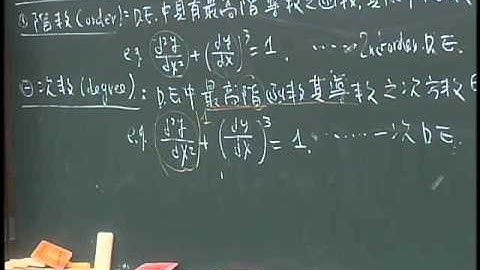 ①階數(order):D.E.中具有最高階導數之函數,
e.g. d²y/dx² + (dy/dx)³ = 1. ...... 2nd-order D.E.
②次數(degree):D.E中最高階函數其導數之次方數
e.g. (d²y/dx²)¹ + (dy/dx)³ = 1. ...... 一次 D.E.